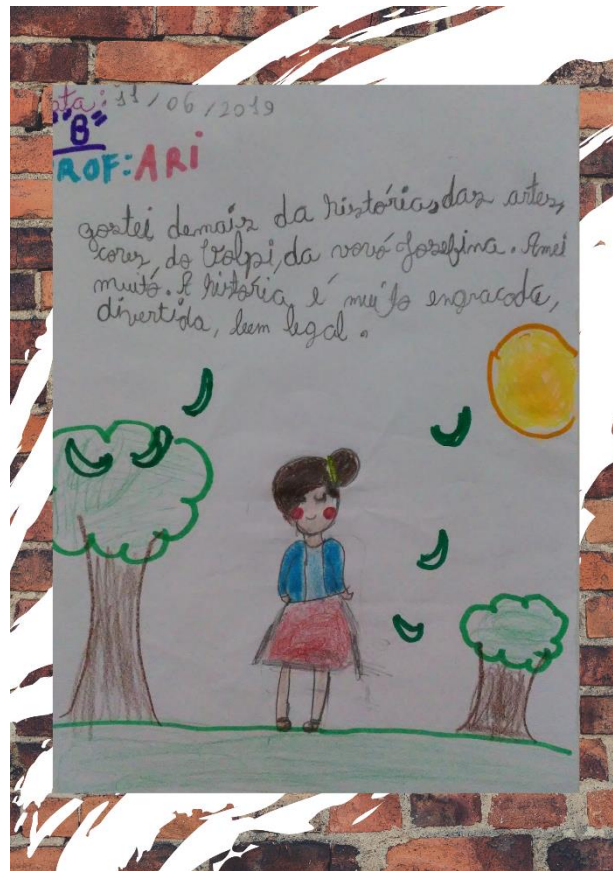 ata: 11/06/2019
"B"
ROF: ARI
gostei demais da histórias, das artes,
cores do Volpi, da vovó Josefina. Amei
muito. A história é muito engracada,
divertida, bem legal.